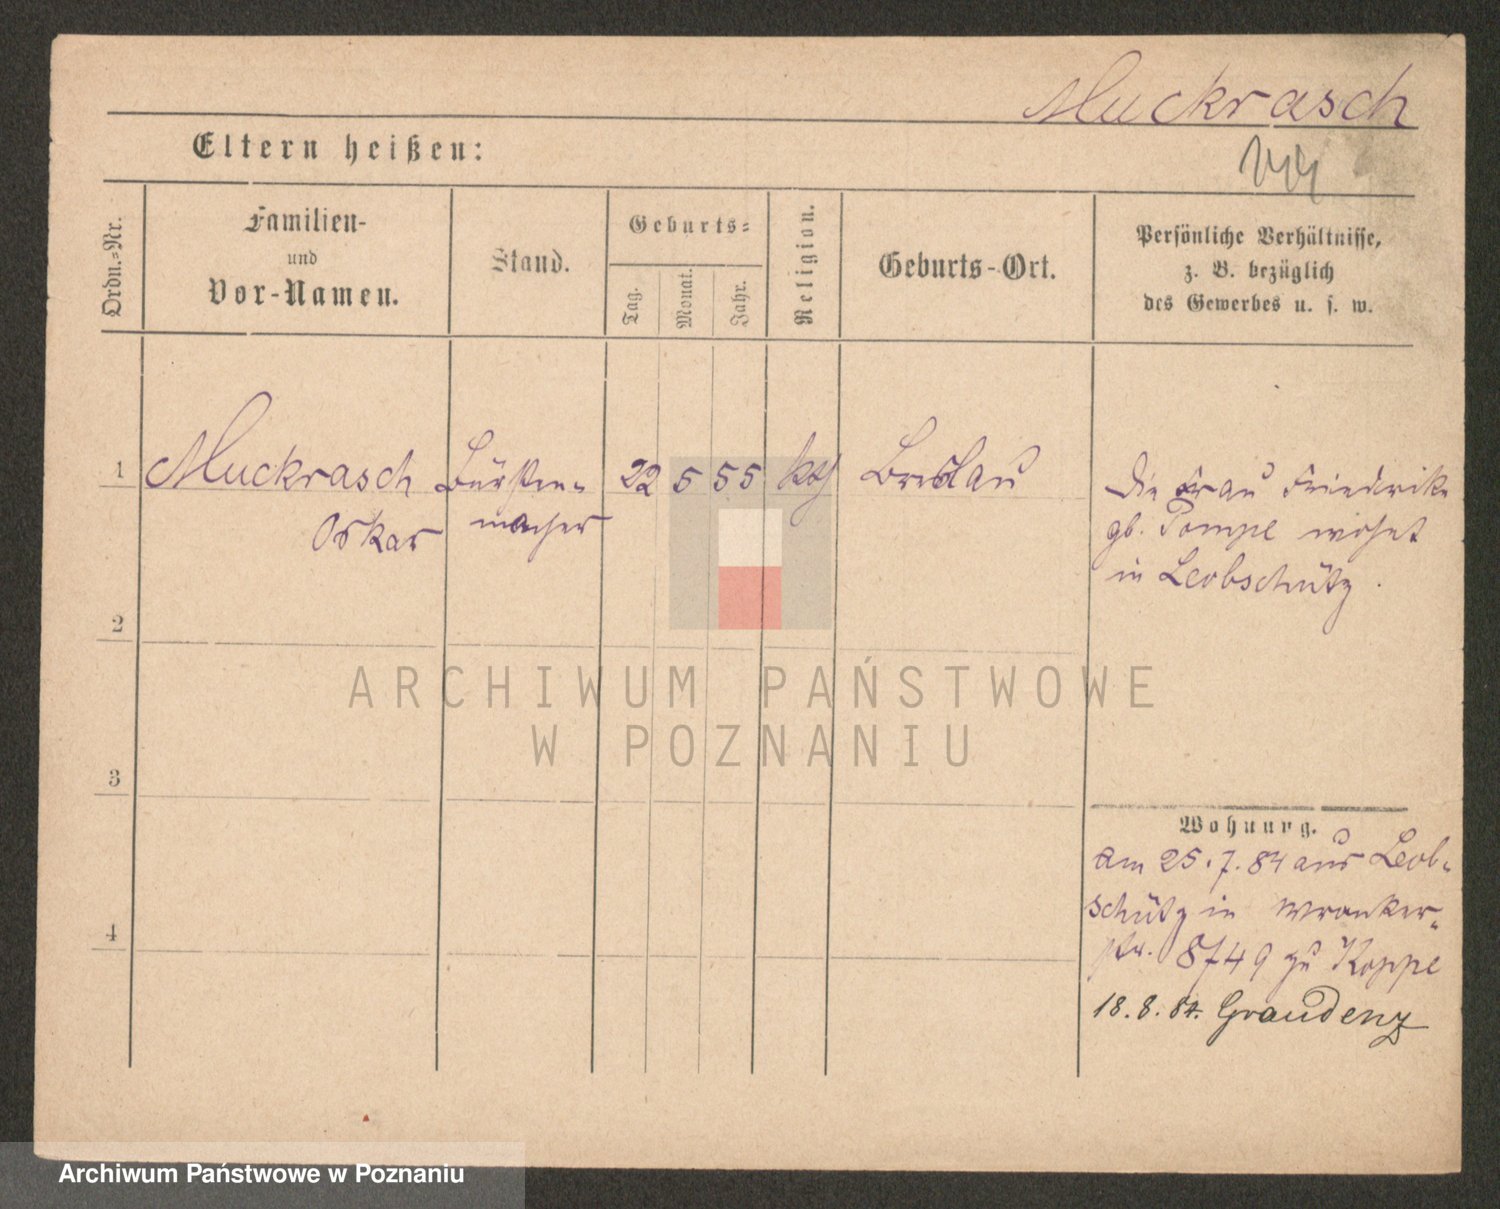 Muckrasch
Eltern heißen:
Ordn.-Nr.
Familien-
und
Vor-Namen.
Stand.
Geburts-
Tag.
Monat.
Jahr.
Religion.
Geburts-Ort.
Persönliche Verhältnisse,
z. B. bezüglich
des Gewerbes u. s. w.
1 Muckrasch Bürsten- 22 5 55 kth Breslau
Oskar macher
Die Frau Friederike
gb. Pompe wohnt
in Leobschütz.
2
3
4
Wohnung.
Am 25.7.84 aus Leob-
schütz in Wronker-
str. 8/49 zu Koppe
18.8.84. Graudenz
ARCHIWUM PAŃSTWOWE
W POZNANIU
Archiwum Państwowe w Poznaniu